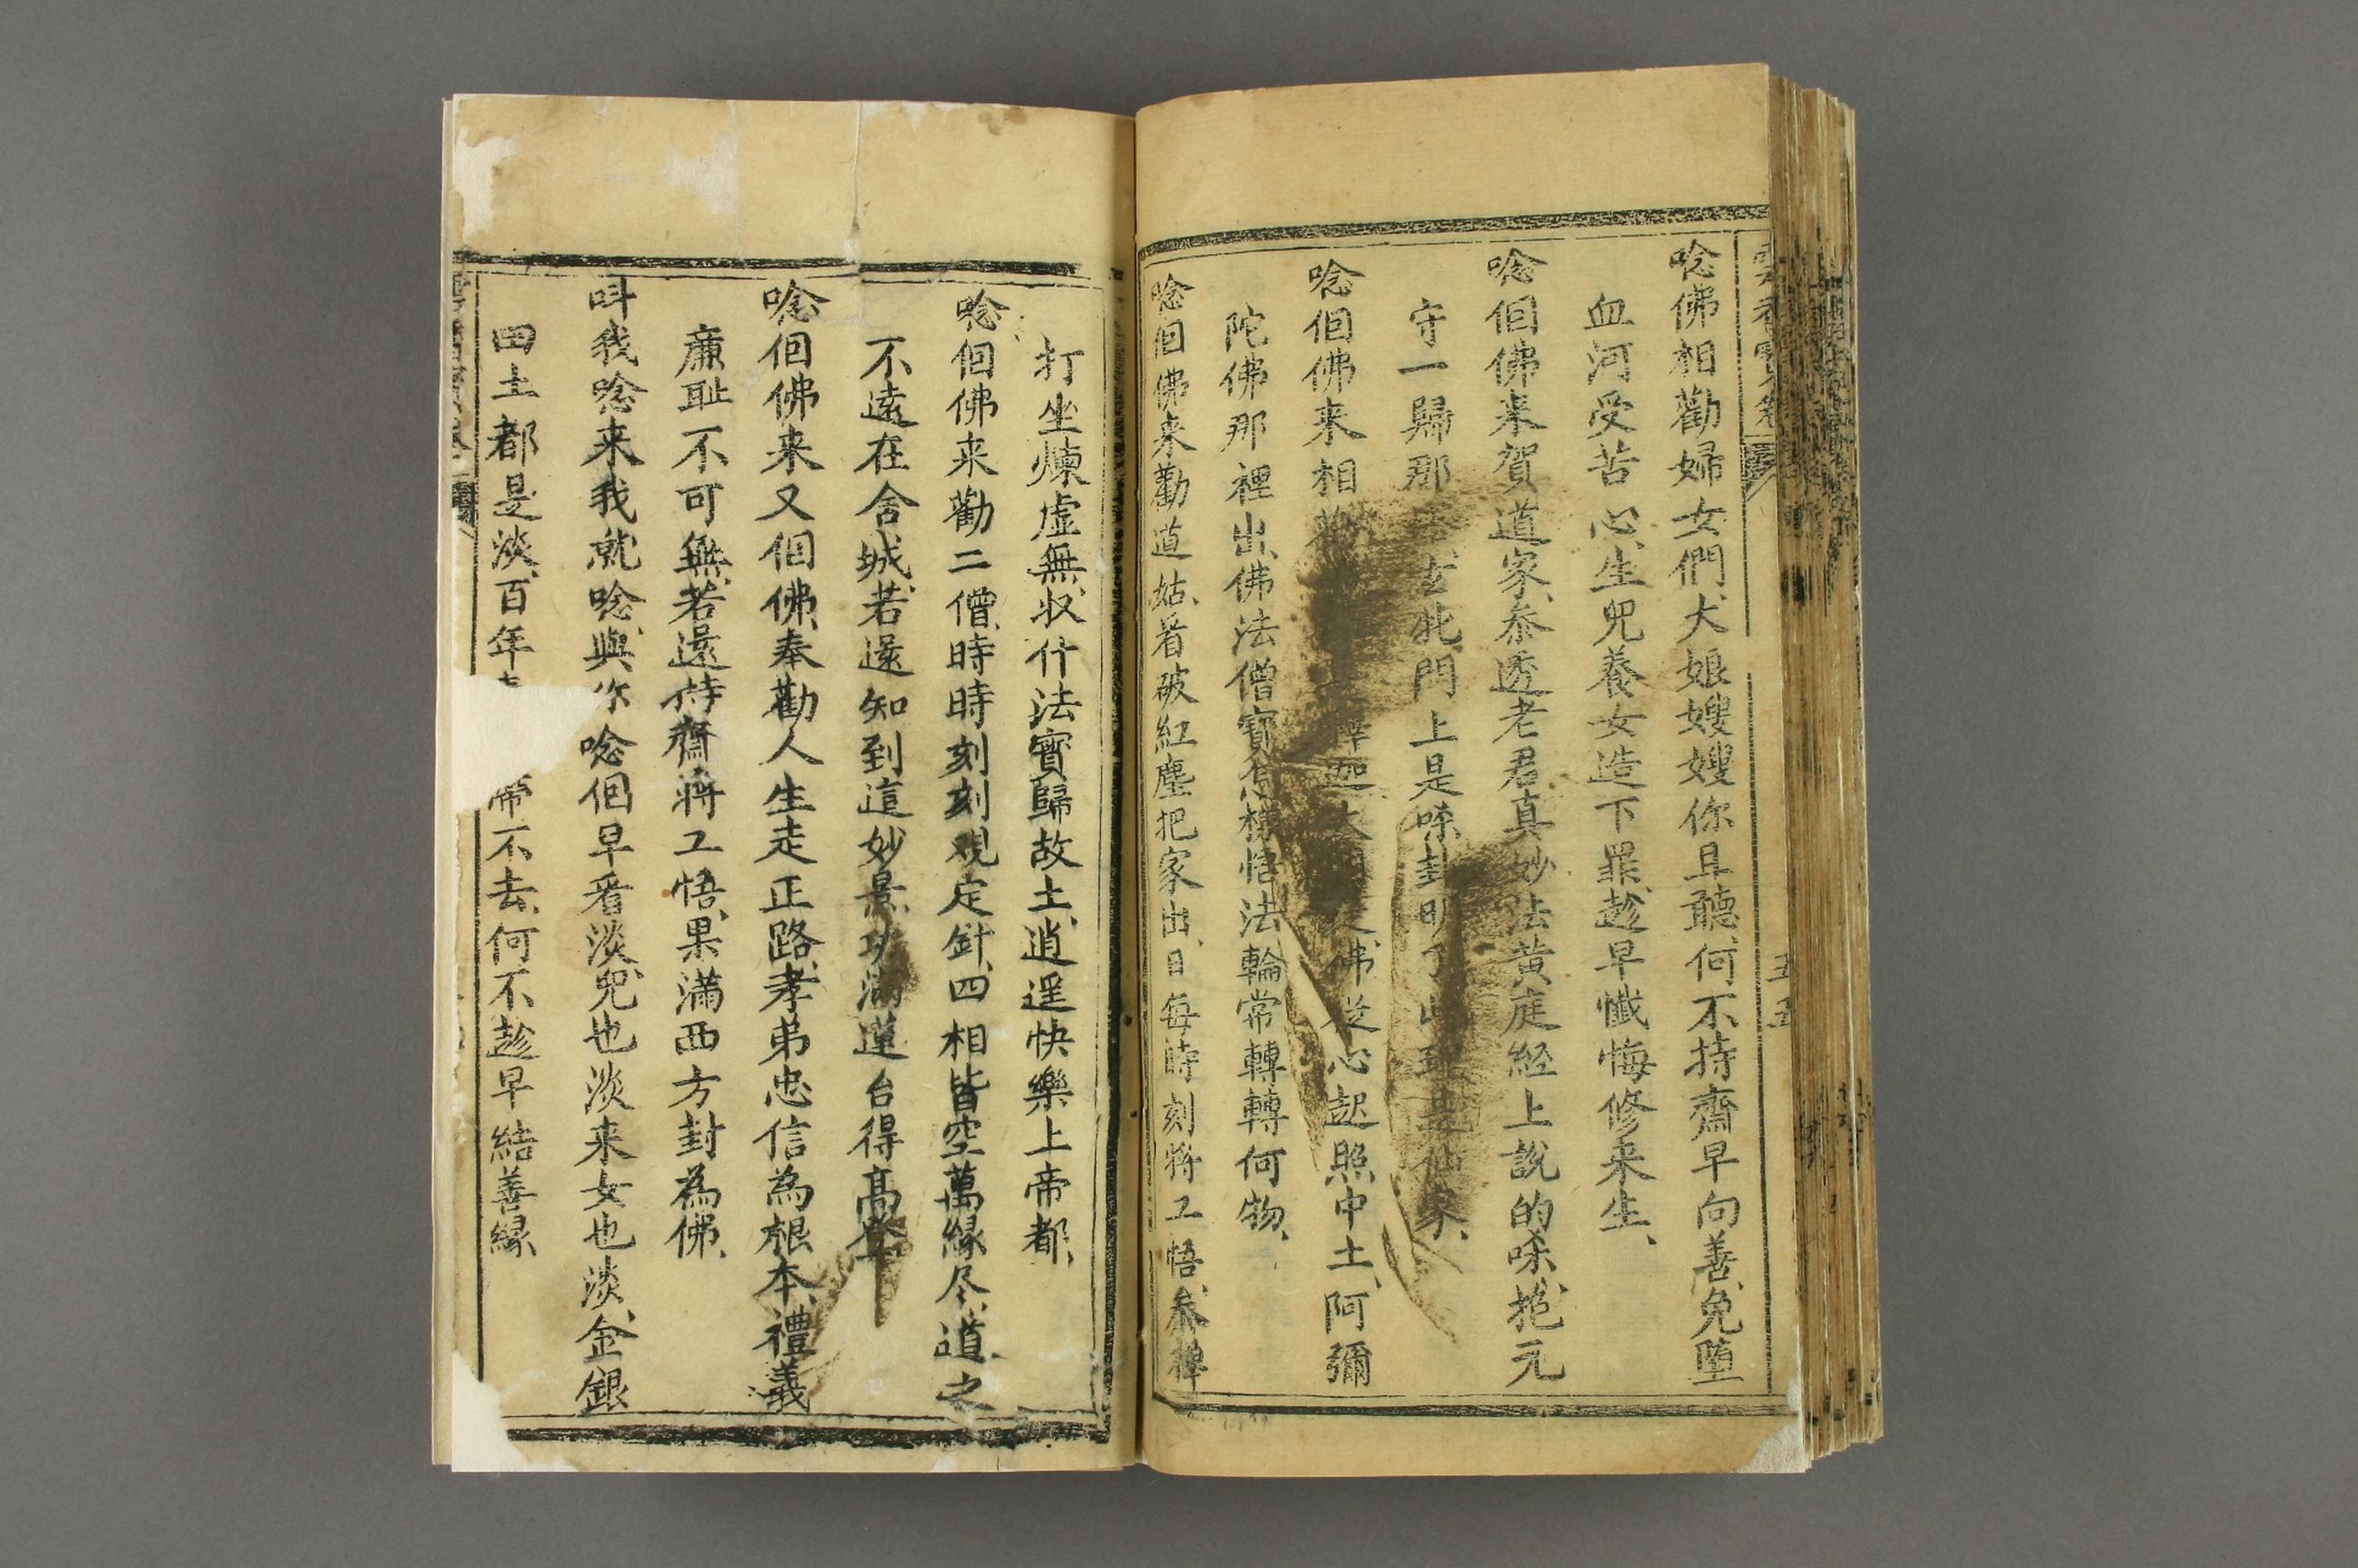 唸佛相勸婦女們、大娘嫂嫂你且聽、何不持齋早向善、免墮
血河受苦心、生児養女造下罪、趁早懺悔修来生、
唸個佛来賀道家、叅透老君真妙法、黄庭經上說的咲、抱元
守一歸那玄牝門上是咲封明了此
唸個佛来相佛從心起照中土、阿彌
陀佛那裡出、佛法僧寶怎様悟、法輪常轉轉何物、
唸個佛来勸道姑、看破紅塵把家出、日每時刻将工悟、叅禅
打坐煉虛無、収什法寳歸故土、逍遥快樂上帝都、
唸個佛来勸二僧、時時刻刻观定針、四相皆空萬縁尽、道之
不遠在舍城、若還知到這妙景、功滿蓮台得髙登
唸個佛来又個佛、奉勸人生走正路、孝弟忠信為根本、禮義
廉耻不可無、若還侍齋将工悟、果滿西方封為佛、
呌我唸来我就唸、與你唸個早看淡、児也淡来女也淡、金銀
田土都是淡、百年帶不去、何不趁早結善縁、
五五